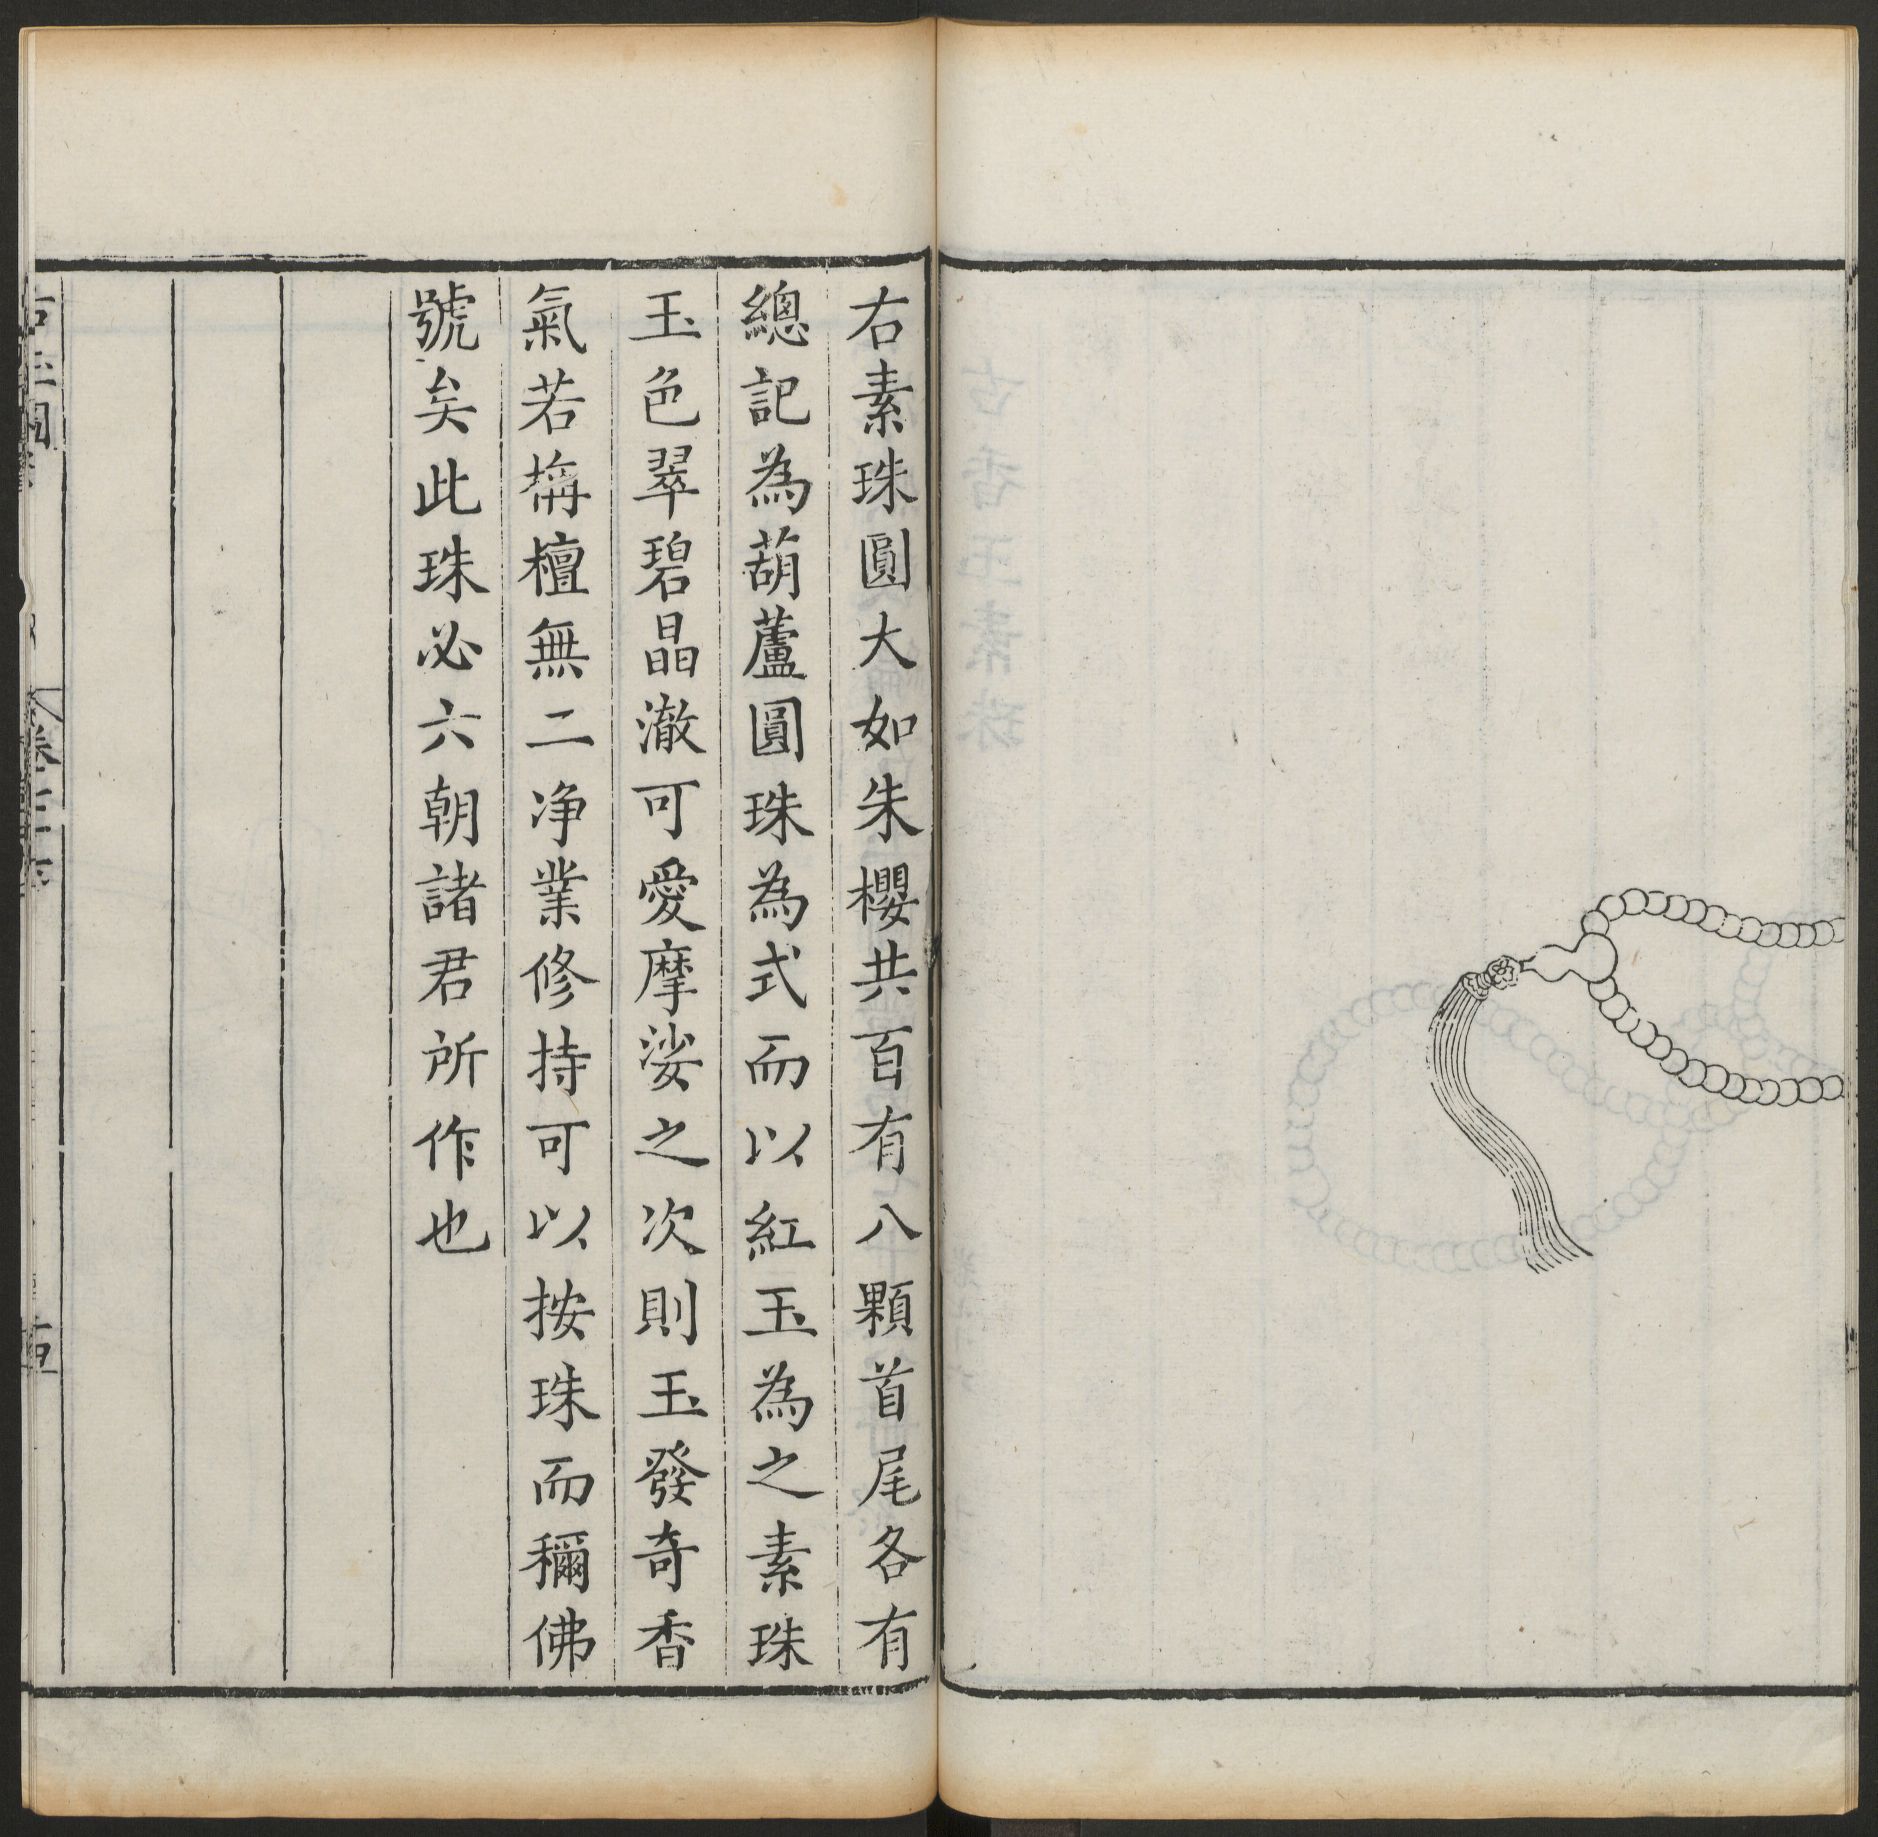 右素珠圓大如朱櫻共百有八顆首尾各有
總記為葫蘆圓珠為式而以紅玉為之素珠
玉色翠碧晶澈可愛摩娑之次則玉發奇香
氣若栴檀無二净業修持可以按珠而稱佛
號矣此珠必六朝諸君所作也